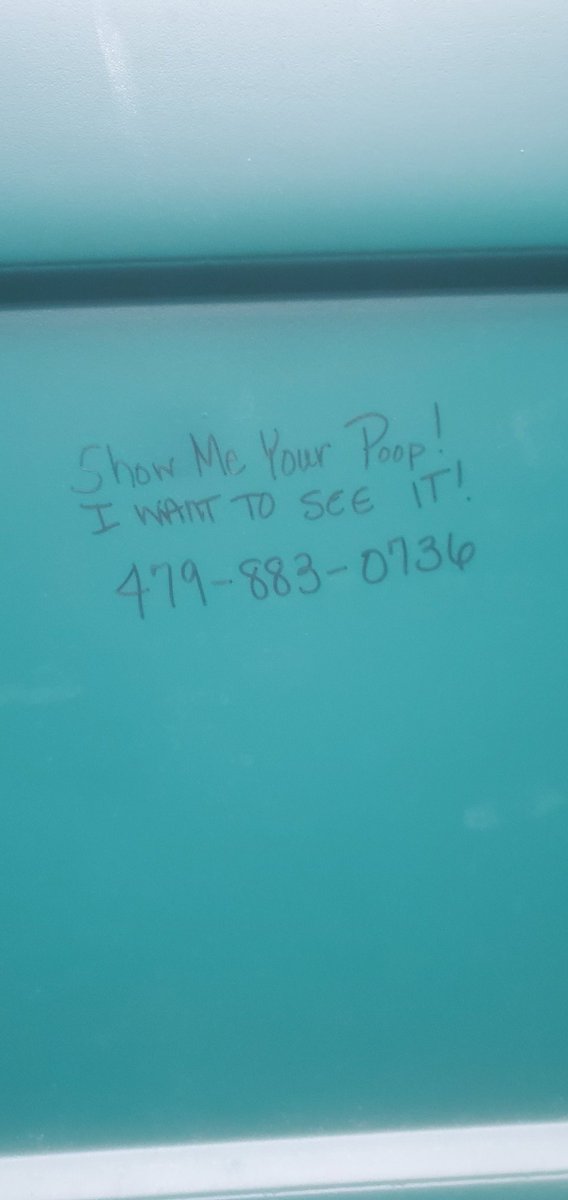 Show Me Your Poop!
I WANT TO SEE IT!
479-883-0736